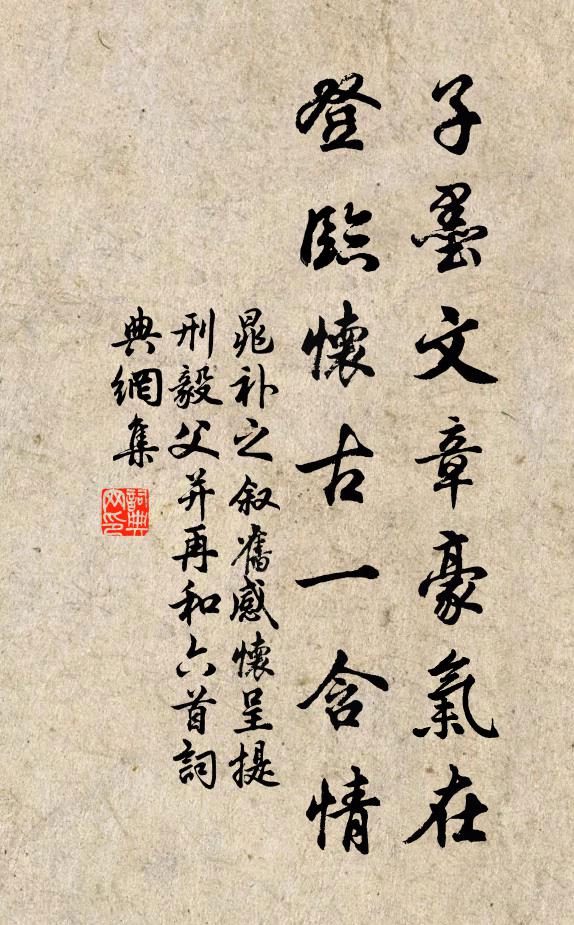 子墨文章豪氣在
登臨懷古一含情
晁補之叙舊感懷呈提
刑毅父并再和六首詞
典網集
詞典网印